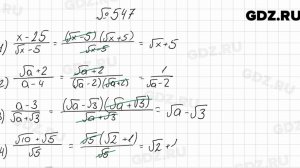 № 547
GDZ.RU
1) (x-25)/(√x-5) = ((√x-5)(√x+5))/(√x-5) = √x+5
2) (√a+2)/(a-4) = (√a+2)/((√a-2)(√a+2)) = 1/(√a-2)
3) (a-3)/(√a+√3) = ((√a-√3)(√a+√3))/(√a+√3) = √a-√3
4) (√10+√5)/√5 = (√5(√2+1))/√5 = √2+1
GDZ.RU